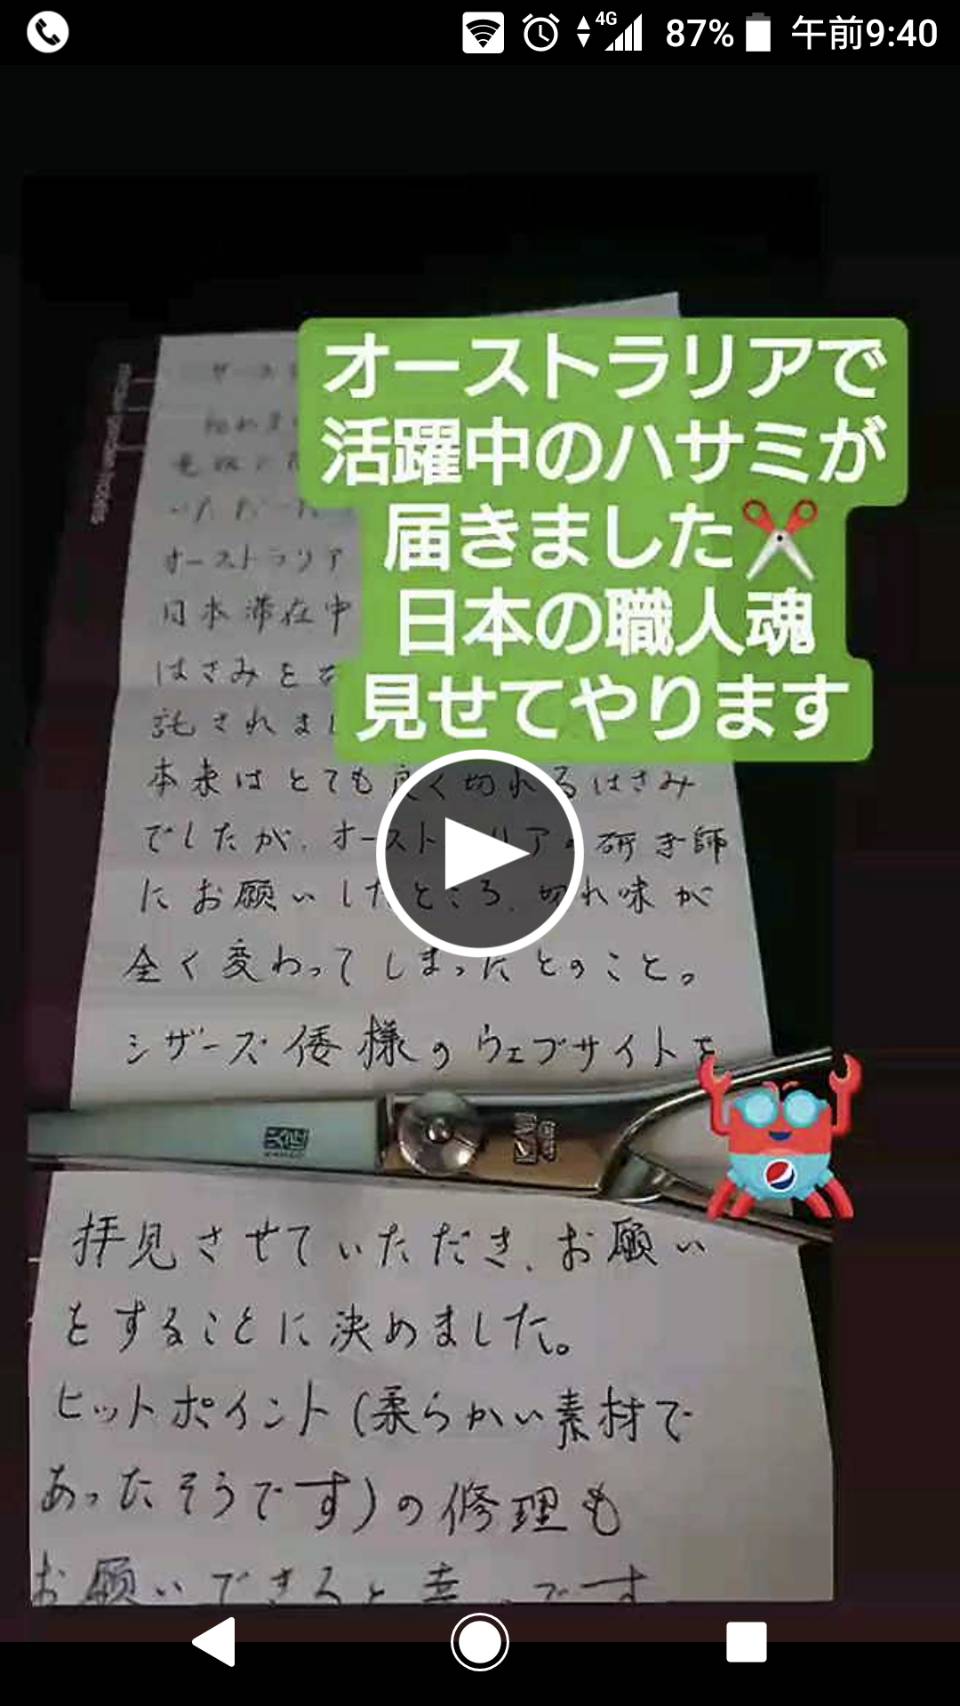 4G
87%
午前9:40
オーストラリアで
活躍中のハサミが
届きました✂
日本の職人魂
見せてやります
オーストラリア
日本滞在中
はさみを
託されま
本来はとても良く切れるはさみ
でしたが、オーストラリアの研ぎ師
にお願いしたところ、切れ味が
全く変わってしまったとのこと。
シザーズ倭様のウェブサイトを
拝見させていただき、お願い
をすることに決めました。
ヒットポイント(柔らかい素材で
あったそうです)の修理も
お願いできると幸いです